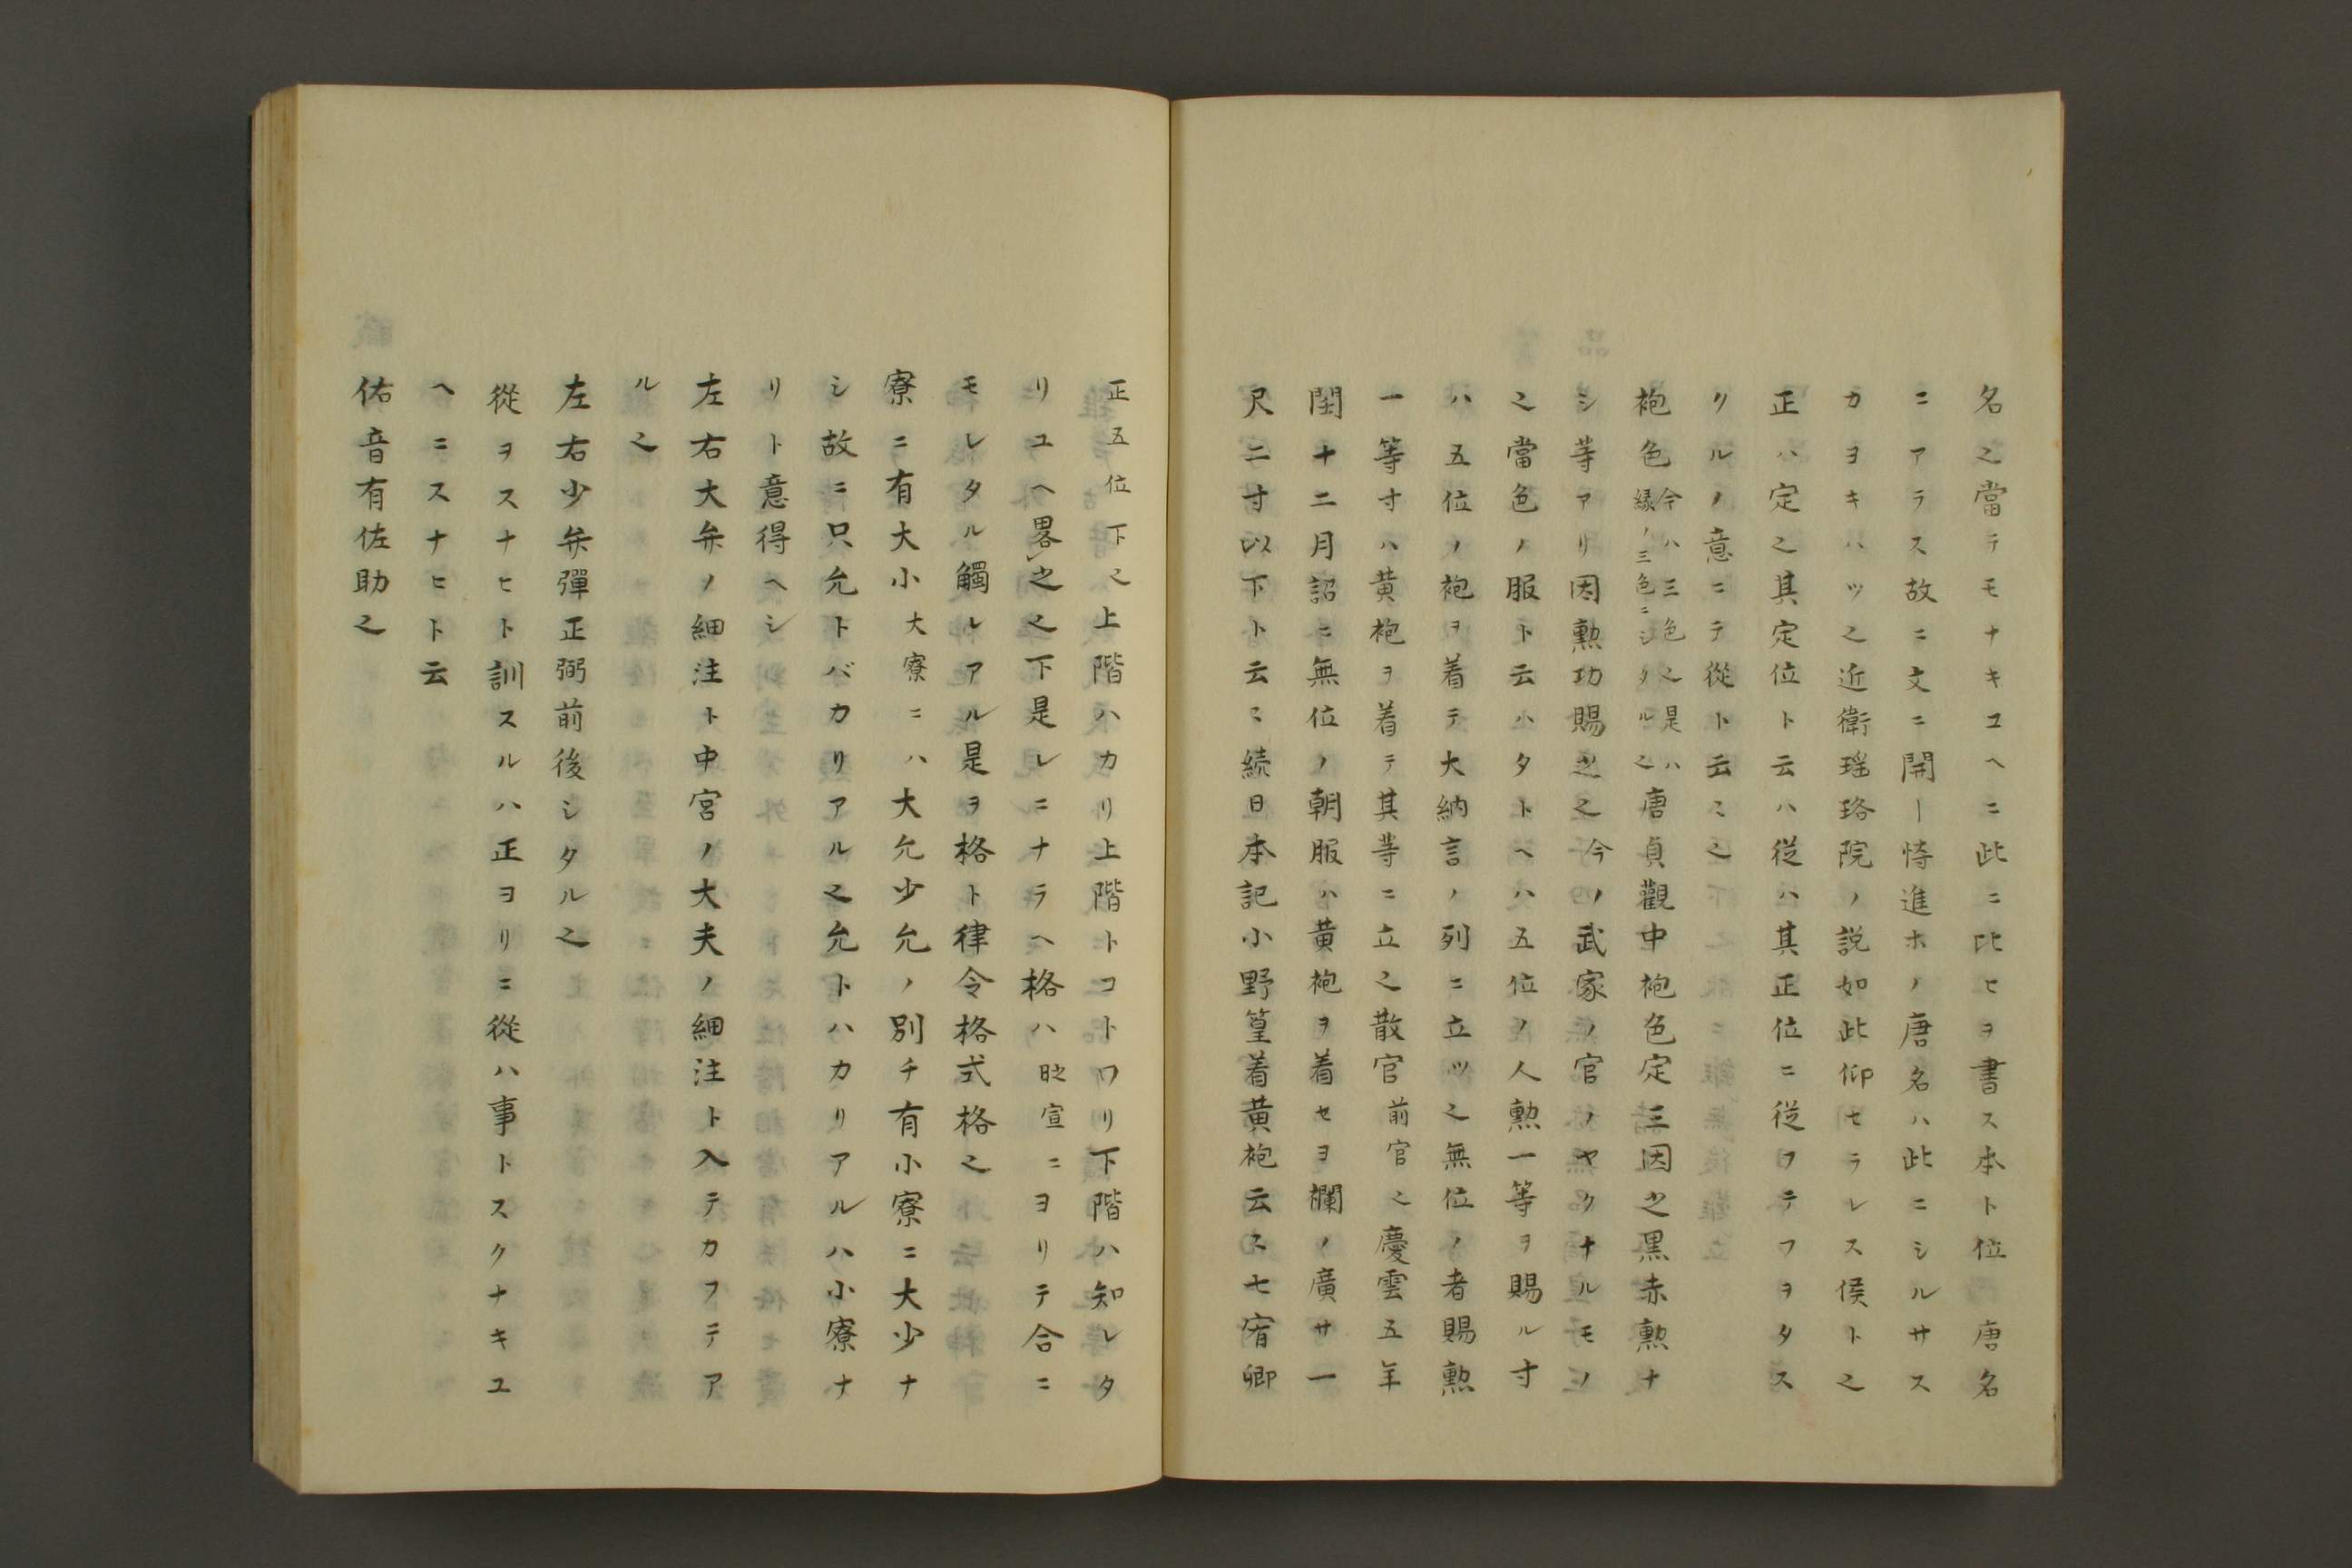 名之當テモナキユヘニ此ニ比ヒヲ書ス本ト位　唐名
ニアラス故ニ文ニ開ー恃進ホノ唐名ハ此ニシルサス
カヨキハツ之近衛瑶珞院ノ説如此仰セラレス侯ト之
正ハ定之其定位ト云ハ従ハ其正位ニ従フテフヲタス
クルノ意ニテ從ト云〻之
袍色今ハ三色之是ハ緑ノ三色ニシタル之唐貞觀中袍色定三因之黒赤勲ナ
シ等アリ因勲功賜之之今ノ武家ノ官ノヤクナルモノ
之當色ノ服ト云ハタトヘハ五位ノ人勲一等ヲ賜ル寸
ハ五位ノ袍ヲ着テ大納言ノ列ニ立ツ之無位ノ者賜勲
一等寸ハ黄袍ヲ着テ其等ニ立之散官前官之慶雲五年
閏十二月詔ニ無位ノ朝服ハ黄袍ヲ着セヨ欄ノ廣サ一
尺二寸以下ト云〻続日本記小野篁着黄袍云〻七宥卿
正五位下之上階ハカリ上階トコトワリ下階ハ知レタ
リユヘ畧之之下是レニナラヘ格ハ時宣ニヨリテ合ニ
モレタル觸レアル是ヲ格ト律令格式格之
寮ニ有大小大寮ニハ大允少允ノ別チ有小寮ニ大少ナ
シ故ニ只允トバカリアル之允トハカリアルハ小寮ナ
リト意得ヘシ
左右大弁ノ細注ト中宮ノ大夫ノ細注ト入テカフテア
ル之
左右少弁彈正弼前後シタル之
從ヲスナヒト訓スルハ正ヨリニ從ハ事トスクナキユ
ヘニスナヒト云
佑音有佐助之